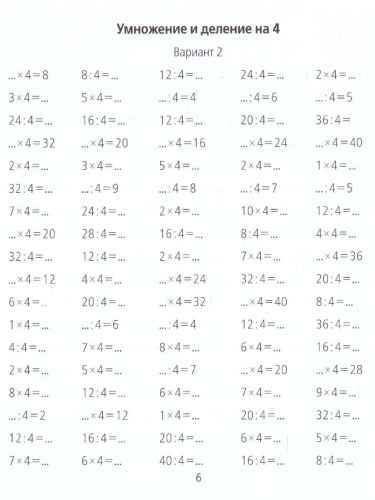 Умножение и деление на 4
Вариант 2
...×4=8 8:4=... 12:4=... 24:4=... 2×4=...
3×4=... 5×4=... ...:4=4 ...:4=6 ...:4=5
24:4=... 16:4=... 12:4=... 20:4=... 36:4=
...×4=32 ...×4=20 ...×4=16 ...×4=24 ...×4=40
2×4=... 3×4=... 5×4=... ...×4=... 1×4=...
32:4=... ...:4=9 ...:4=8 ...:4=7 ...:4=5
7×4=... 24:4=... 2×4=... 10×4=... 12:4=...
...×4=20 28:4=... 16:4=... 8:4=... 4×4=...
32:4=... 12:4=... 2×4=... 7×4=... ...×4=36
...×4=12 4×4=... ...×4=24 32:4=... 20:4=...
6×4=.. 20:4=... ...×4=32 ...×4=40 8:4=...
1×4=... ...:4=6 ...:4=4 12:4=... 36:4=...
4:4=... 7×4=... 8×4=... 6×4=... 16:4=...
2×4=... 5×4=... ...:4=7 ...×4=20 ...×4=28
8×4=... 12:4=... 6×4=... 7×4=... 9×4=...
...:4=2 ...×4=12 1×4=... 20:4=... 32:4=...
12:4=... 16:4=... 20:4=... 6×4=... 5×4=...
7×4=... 6×4=... 40:4=... 16:4=... 8:4=...
6